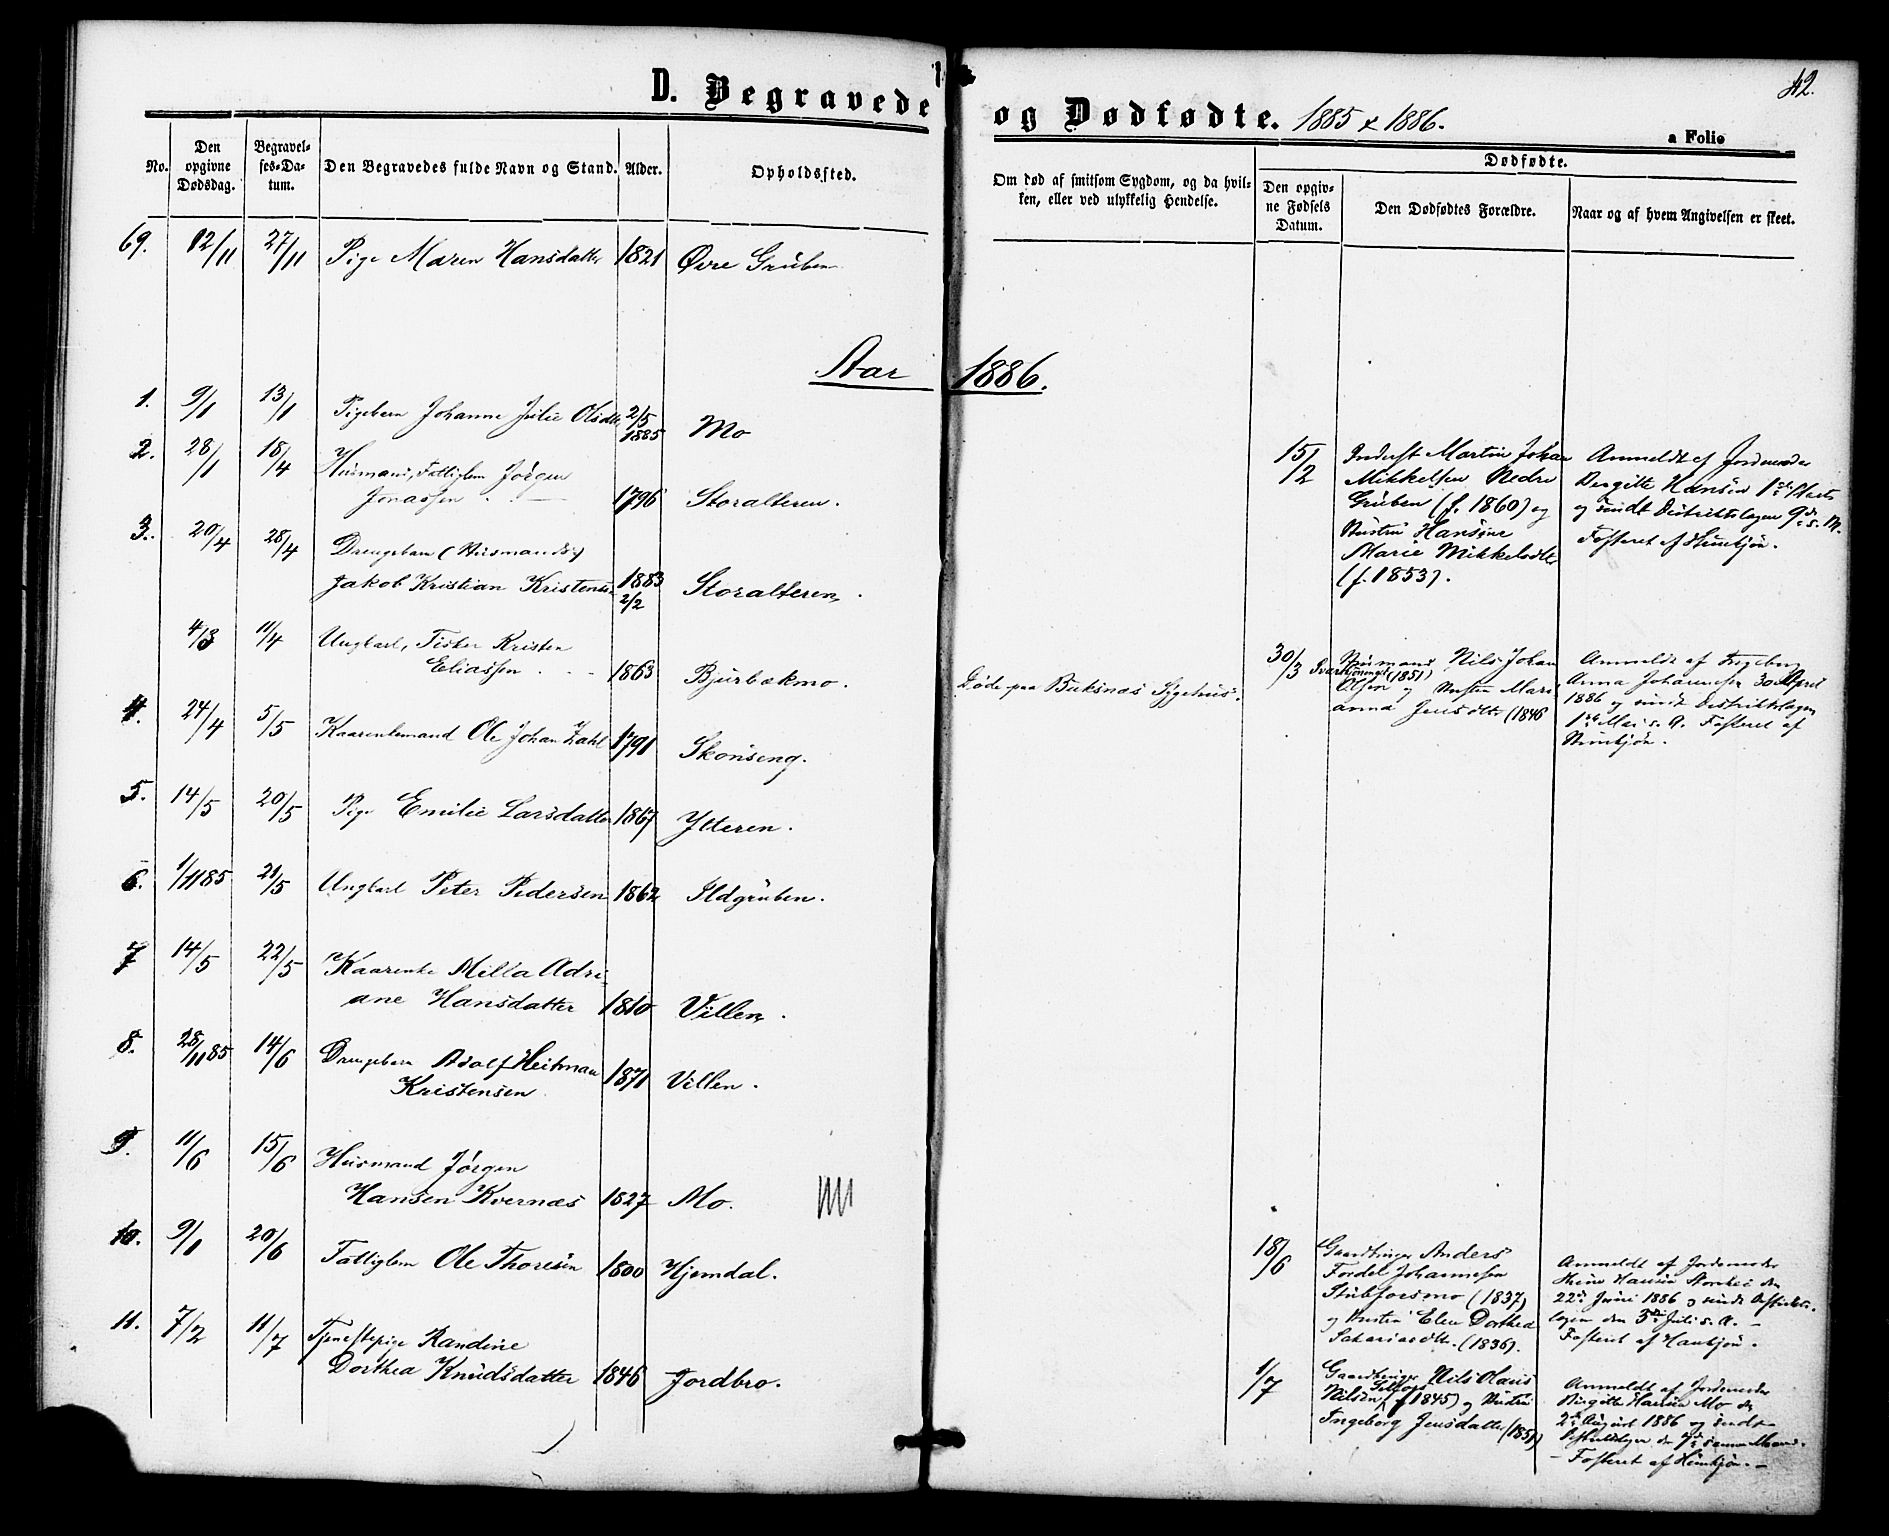 42.
D. Begravede og Dødfødte. 1885 & 1886.
a Folio
No.
Den opgivne Dødsdag.
Begravelses-Datum.
Den Begravedes fulde Navn og Stand.
Alder.
Opholdssted.
Om død af smitsom Sygdom, og da hvilken, eller ved ulykkelig Hendelse.
Dødfødte.
Den opgivne Fødsels Datum.
Den Dødfødtes Forældre.
Naar og af hvem Angivelsen er skeet.
69. 12/11 27/11 Pige Maren Hansdatter 1821 Øvre Gruben
Aar 1886.
1. 9/1 13/1 Pigebarn Johanne Julie Olsdtr 2/5 1885 Mo
2. 28/1 18/4 Husmand, Fattiglem Jørgen
Jonassen 1796 Storalteren.
3. 20/4 28/4 Drengebarn (Husmands)
Jakob Kristian Kristensen 1883 2/2 Storalteren.
4/3 11/4 Ungkarl, Fisker Kristen
Eliassen 1863 Bjurbækmo. Døde paa Buksnæs Sygehus.
4. 24/4 5/5 Kaarenkemand Ole Johan Zahl 1791 Skonseng.
5. 14/5 20/5 Pige Emilie Larsdatter 1867 Ytteren.
6. 1/11 85 21/5 Ungkarl Peter Pedersen 1862 Ildgruben.
7 14/5 22/5 Kaarenke Milla Adri-
ane Hansdatter 1810 Villen.
8. 28/11 85 14/6 Drengebarn Adolf Heitman
Kristensen 1871 Villen.
9. 11/6 15/6 Husmand Jørgen
Hansen Kvernæs 1827 Mo.
10. 9/1 20/6 Fattiglem Ole Thoresen 1800 Hjemdal.
11. 7/2 11/7 Tjenestepige Randine
Dorthea Knudsdatter 1846 Jordbro.
15/2 Inderst Martin Johan
Mikkelsen Nedre
Gruben (f. 1860) og
Hustru Hansine
Marie Mikkelsdtr
(f. 1853).
Anmeldt af Jordemoder
Bergitte Hansen 1ste Marts
og sendt Distriktslægen 9de s. M.
Fosteret af Hunkjøn.
30/3 Husmand Nils Johan
Svartisdal (1851)
Olsen og Hustru Mari-
anna Jensdtr (1846
Anmeldt af Ingeborg
Anna Johannesen 30 April
1886 og sendt Distriktslægen
1ste Mai s. A. Fosteret af
Hunkjøn.
18/6 Gaardbruger Anders
Fordel Johannesen
Stubforsmo (1837)
og Hustru Elen Dorthea
Sakariasdtr. (1836).
Anmeldt af Jordemoder
Hansen den
22de Juni 1886 og sendt Distrikts-
lægen den 3die Juli s. A. –
Fosteret af Hankjøn.
1/7 Gaardbruger Nils Olaus
Nilsen, Selfors (f 1845) og Hustru
Ingeborg Jensdatter (1851)
Anmeldt af Jordemoder
Birgitte Hansen Mo den
2den August 1886 og sendt
Distriktslægen den 7de samme Maaned.
– Fosteret af Hunkjøn. –